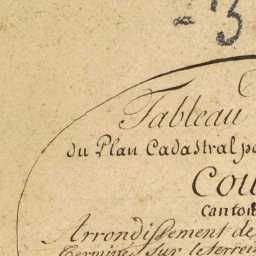 -3
Tableau
du Plan Cadastral pa
COU
Canton
Arrondissement de
Terminé sur le terrein